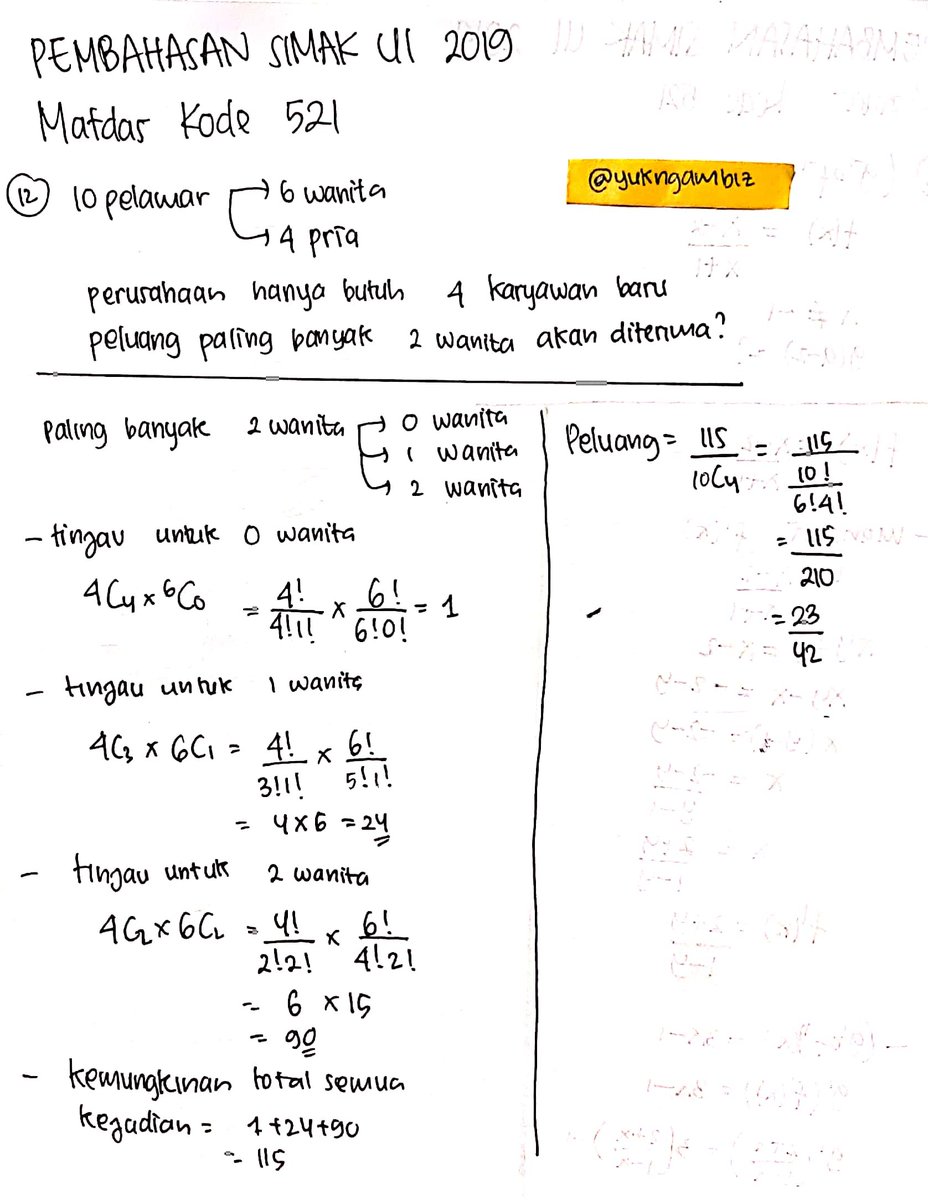 PEMBAHASAN SIMAK UI 2019
Matdas Kode 521
@yukngambiz
12 10 pelamar → 6 wanita
→ 4 pria
perusahaan hanya butuh 4 karyawan baru
peluang paling banyak 2 wanita akan diterima?
Paling banyak 2 wanita → 0 wanita
→ 1 wanita
→ 2 wanita
- tinjau untuk 0 wanita
4C4 x 6C0 = 4!/4!1! x 6!/6!0! = 1
- tinjau untuk 1 wanita
4C3 x 6C1 = 4!/3!1! x 6!/5!1!
= 4 x 6 = 24
- tinjau untuk 2 wanita
4C2 x 6C2 = 4!/2!2! x 6!/4!2!
= 6 x 15
= 90
- kemungkinan total semua
kejadian = 1+24+90
= 115
Peluang = 115/10C4 = 115/(10!/6!4!)
= 115/210
= 23/42